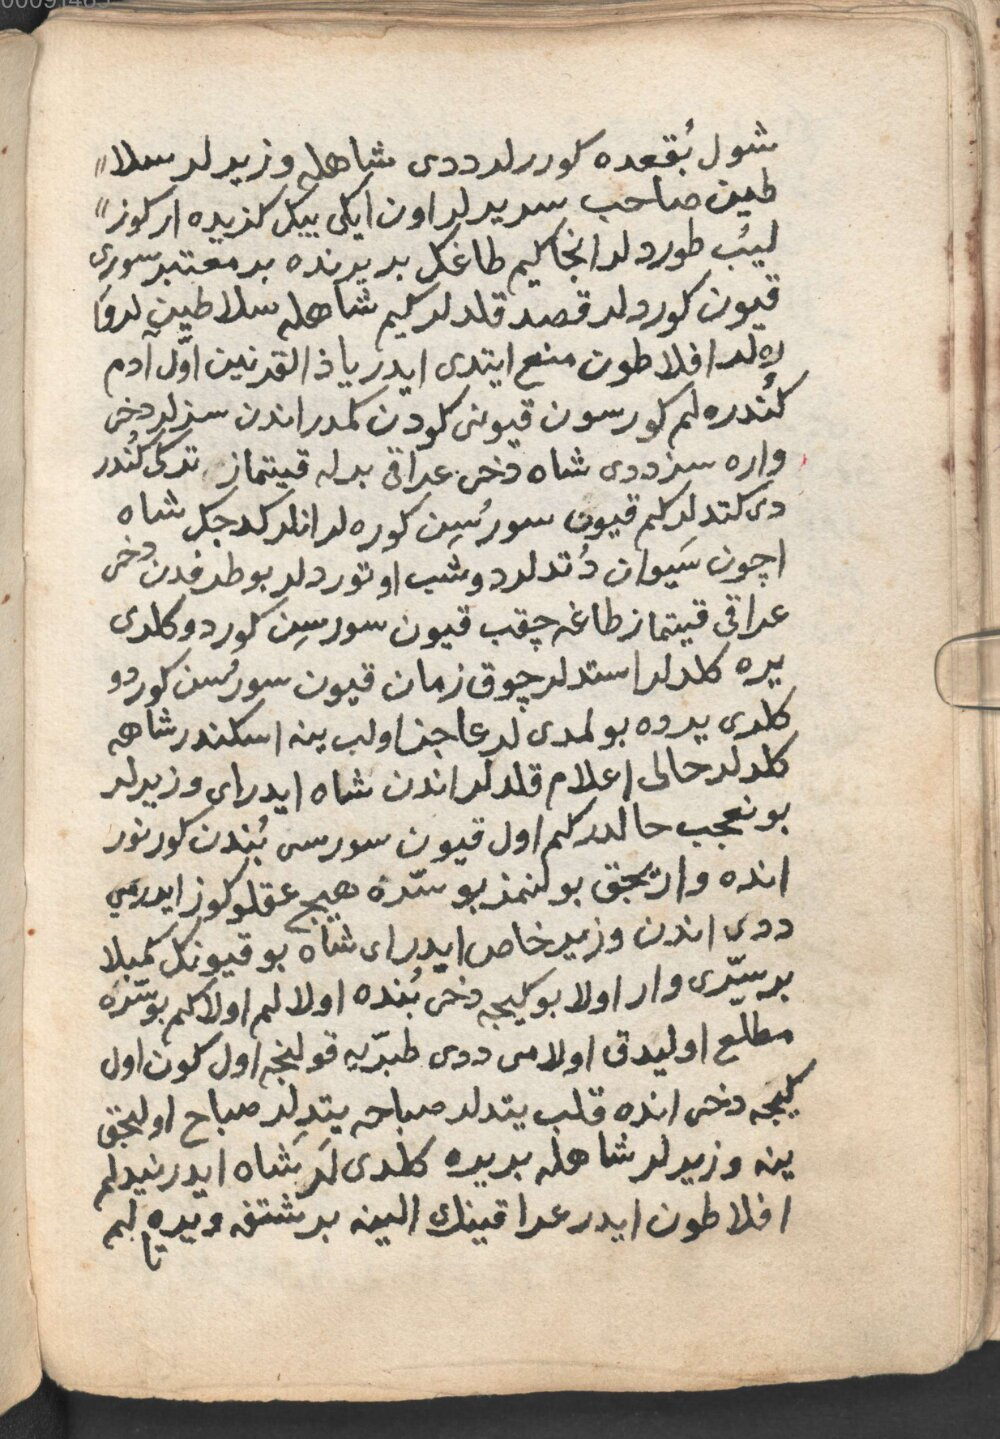 شول بُقعده كوررلر ددی شاهله وزيرلر سلا
طين صاحب سريرلر اون ايكی بيك كزيده ار كوز
ليب طوردلر انجا كيم طاغك بر يرنده بر معتبر سوری
قيون كوردلر قصد قلدلر كيم شاهله سلاطين لر وا
ره لر افلاطون منع ايتدی ايدر يا ذالقرنين اوّل آدم
كُندره لم كورسون قيونی كودن كمدر اندن سزلر دخی
واره سز ددی شاه دخی عراقی برله قيتماز تركی كُندر
دی كتدلر كم قيون سورُسِن كوره لر انلر كدجك شاه
اچون سَيوان دُتدلر دوشب اوتوردلر بو طرفدن دخی
عراقی قيتماز طاغه چقب قيون سورسِن كوردوكلری
يره كلدلر استدلر چوق زمان قيون سورُسن كوردو
كلری يرده بولمدی لر عاجز اولب ينه اسكندر شاهه
كلدلر حالی اعلام قلدلر اندن شاه ايدر ای وزيرلر
بو نعجب حالدر كم اول قيون سورسی بُندن كورنور
انده واريجق بولنمز بو سرّه هيچ عقلوكوز ايدرمی
ددی اندن وزير خاص ايدر ای شاه بو قيونك كمبلا
بر سِرّی وار اولا بو كيجه دخی بُنده اولا لم اولا كم بو سرّه
مطلع اوليدق اولامی ددی طبرّيه قولنجه اول كون اول
كيجه دخی انده قلب يتدلر صباحه يتدلر صباح اوليجق
ينه وزيرلر شاهله بر يره كلدی لَر شاه ايدر نيدلم
افلاطون ايدر عراقينك الينه بر شتفه ويره لم
تا